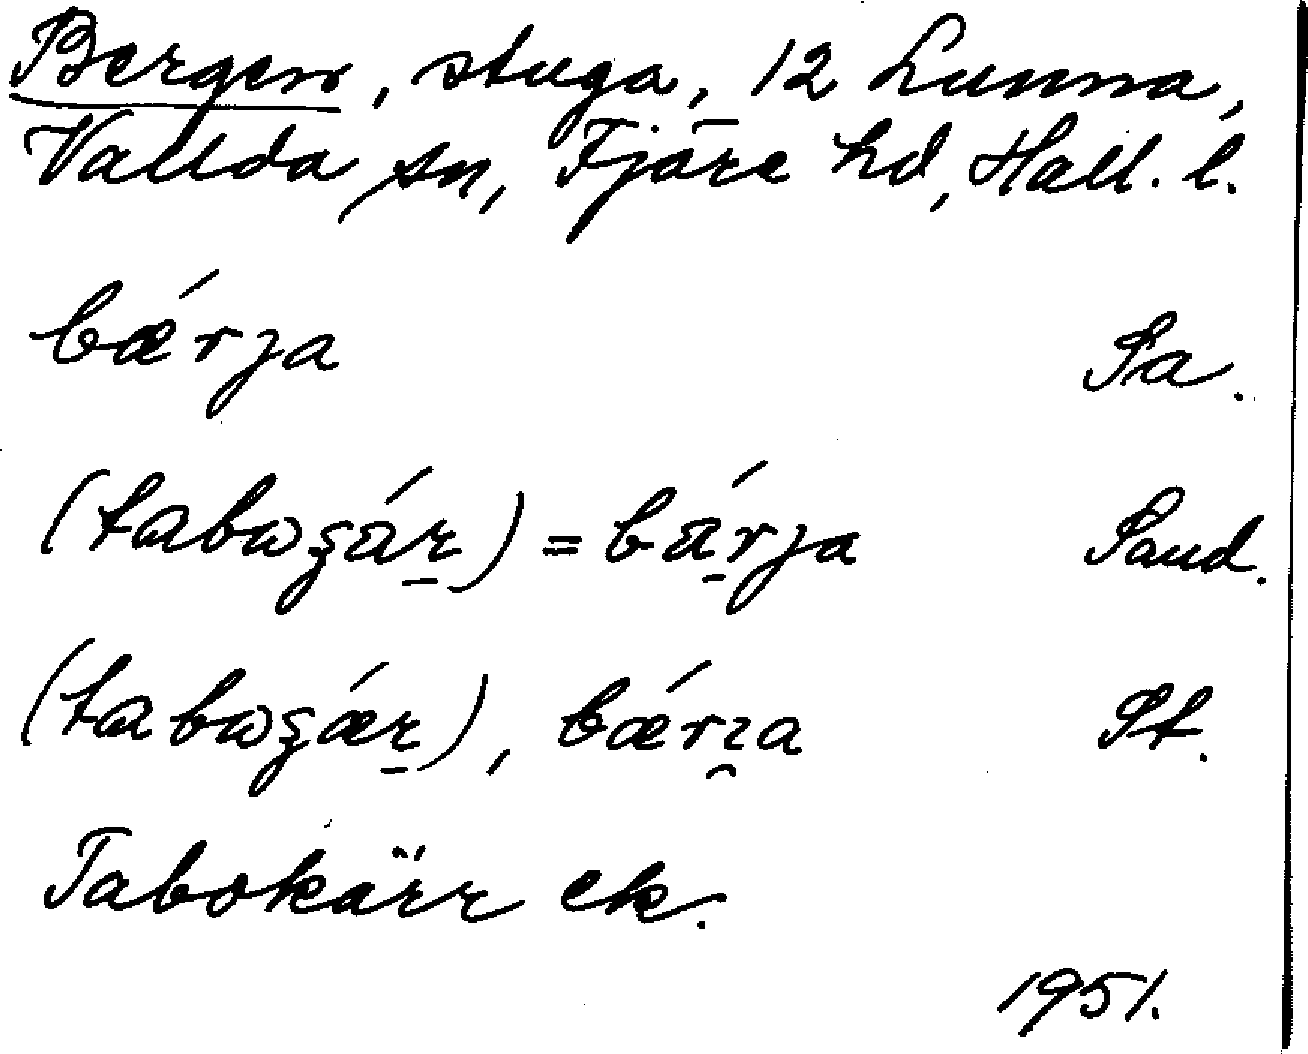 Bergen, stuga, 12 Lunna,
Vallda sn, Fjäre hd, Hall. l.
bǽrja Sa.
(tabωʒár) = bárja Sand.
(tabωʒǽr), bǽrɿa St.
Tabokärr ek.
1951.